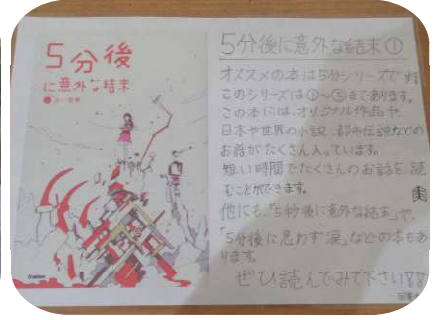 5分後
に意外な結末
5分後に意外な結末①
オススメの本は5分シリーズです
このシリーズは①～⑤まであります。
この本には、オリジナル作品や
日本や世界の小説、都市伝説などの
お話がたくさん入っています。
短い時間でたくさんのお話を読
むことができます。
他にも、「5秒後に意外な結末」や、
「5分後に思わず涙」などの本もあ
ります。
ぜひ読んでみて下さい!!